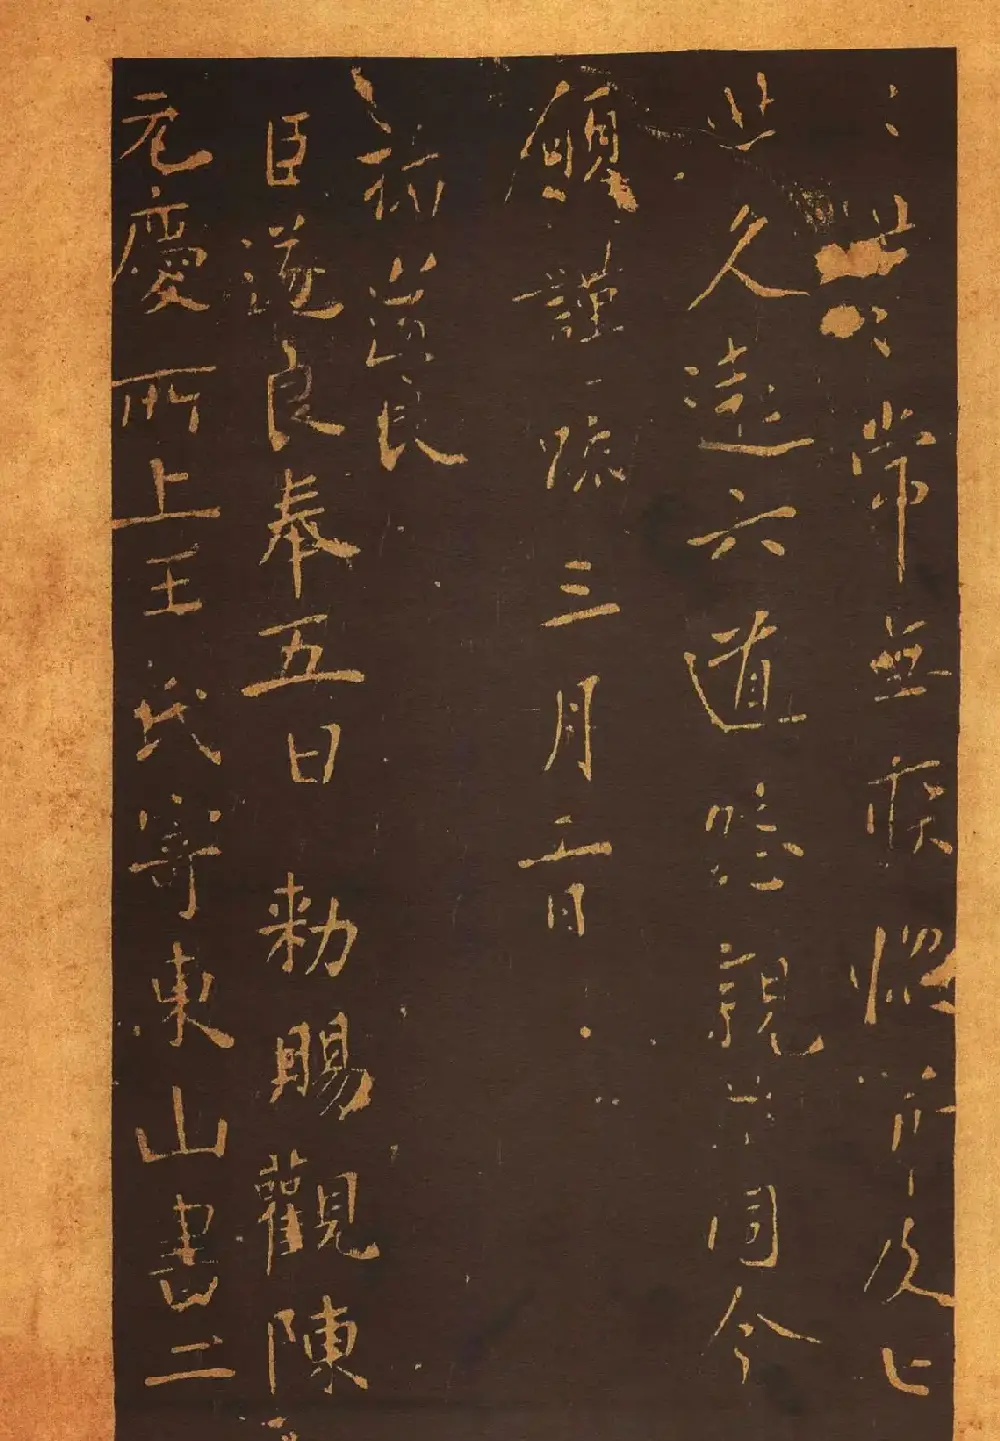 〻世〻常無疾惱所及七
世久遠六道怨親等同今
願謹疏三月日
褚遂良
臣遂良奉五日勅賜觀陳
元慶所上王氏寄東山書二